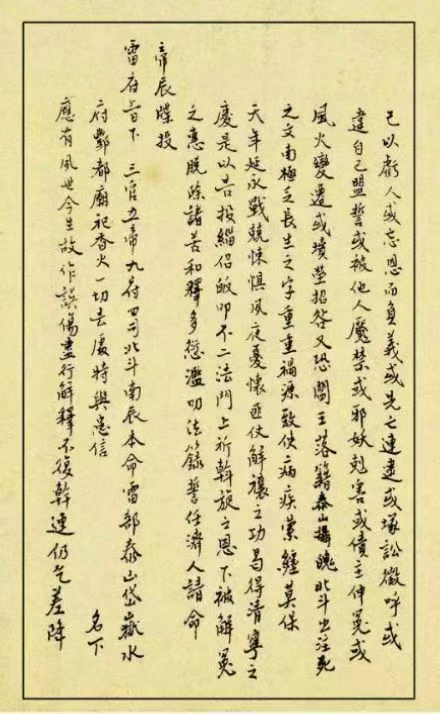 己以虧人或忘恩而負義或先亡連逮或塚訟徵呼或
違自己盟誓或被他人魘禁或邪妖剋害或債主伸冤或
風火變遷或墳塋招咎又恐閻王落籍泰山攝魄北斗出注死
之文南極乏長生之字重重禍源致使二病疾縈纏莫保
天年延永戰兢悚惧夙夜憂懷匪仗解禳之功曷得清寧之
慶是以告投緇侶皈叩不二法門上祈斡旋之恩下被解冤
之惠脱除諸苦和釋多愆濫叨法籙誓任濟人請命
帝辰牒投
雷府旨下 三官五帝九府四司北斗南辰本命雷部泰山岱嶽水
府酆都廟祀香火一切去處特與患信 名下
應有夙世今生故作誤傷盡行解釋不復斡連仍乞差降